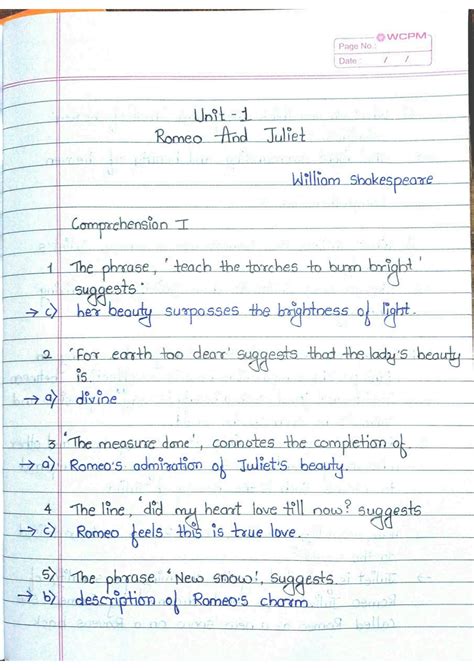 WCPM
Page No.:
Date: / /
Unit - 1
Romeo And Juliet
William Shakespeare
Comprehension I
1 The phrase, 'teach the torches to burn bright'
suggests
→ c) her beauty surpasses the brightness of light.
2 'For earth too dear' suggests that the lady's beauty
is.
→ a) divine
3 'The measure done', connotes the completion of
→ a) Romeo's admiration of Juliet's beauty.
4 The line, 'did my heart love till now? suggests
→ c) Romeo feels this is true love.
5) The phrase 'New snow', suggests
→ b) description of Romeo's charm.